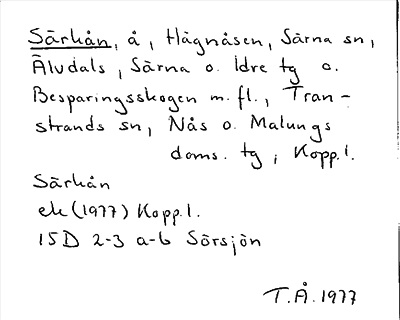 Särkån, å, Hägnåsen, Särna sn,
Älvdals, Särna o. Idre tg o.
Besparingsskogen m.fl., Tran-
strands sn, Nås o. Malungs
doms. tg, Kopp.l.
Särkån
ek (1977) Kopp.l.
15D 2-3 a-b Sörsjön
T.Å. 1977